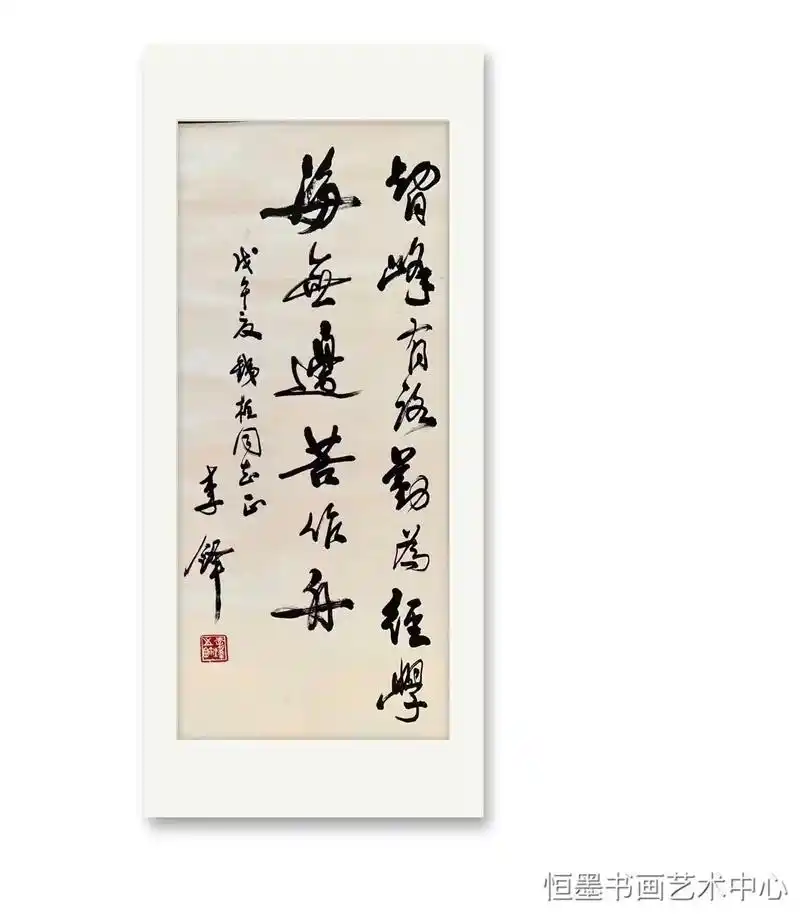 智峰有路勤為徑學
海無邊苦作舟
戊午夏鐵柱同志正
李鐸
恒墨书画艺术中心